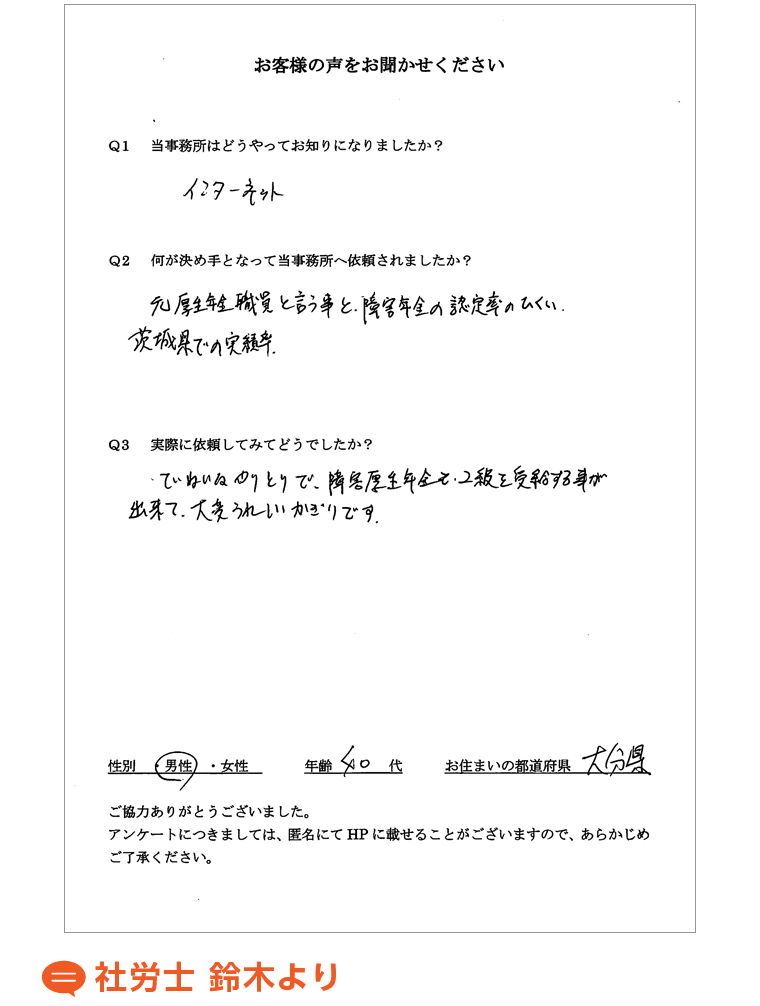 お客様の声をお聞かせください
Q1 当事務所はどうやってお知りになりましたか？
インターネット
Q2 何が決め手となって当事務所へ依頼されましたか？
元厚生年金職員と言う事と、障害年金の認定率のひくい、
茨城県での実績率。
Q3 実際に依頼してみてどうでしたか？
・ていねいなやりとりで、障害厚生年金を、2級を受給する事が
出来て、大変うれしいかぎりです。
性別 ・男性 ・女性 年齢 40 代 お住まいの都道府県 大分県
ご協力ありがとうございました。
アンケートにつきましては、匿名にて HP に載せることがございますので、あらかじめ
ご了承ください。
社労士 鈴木より